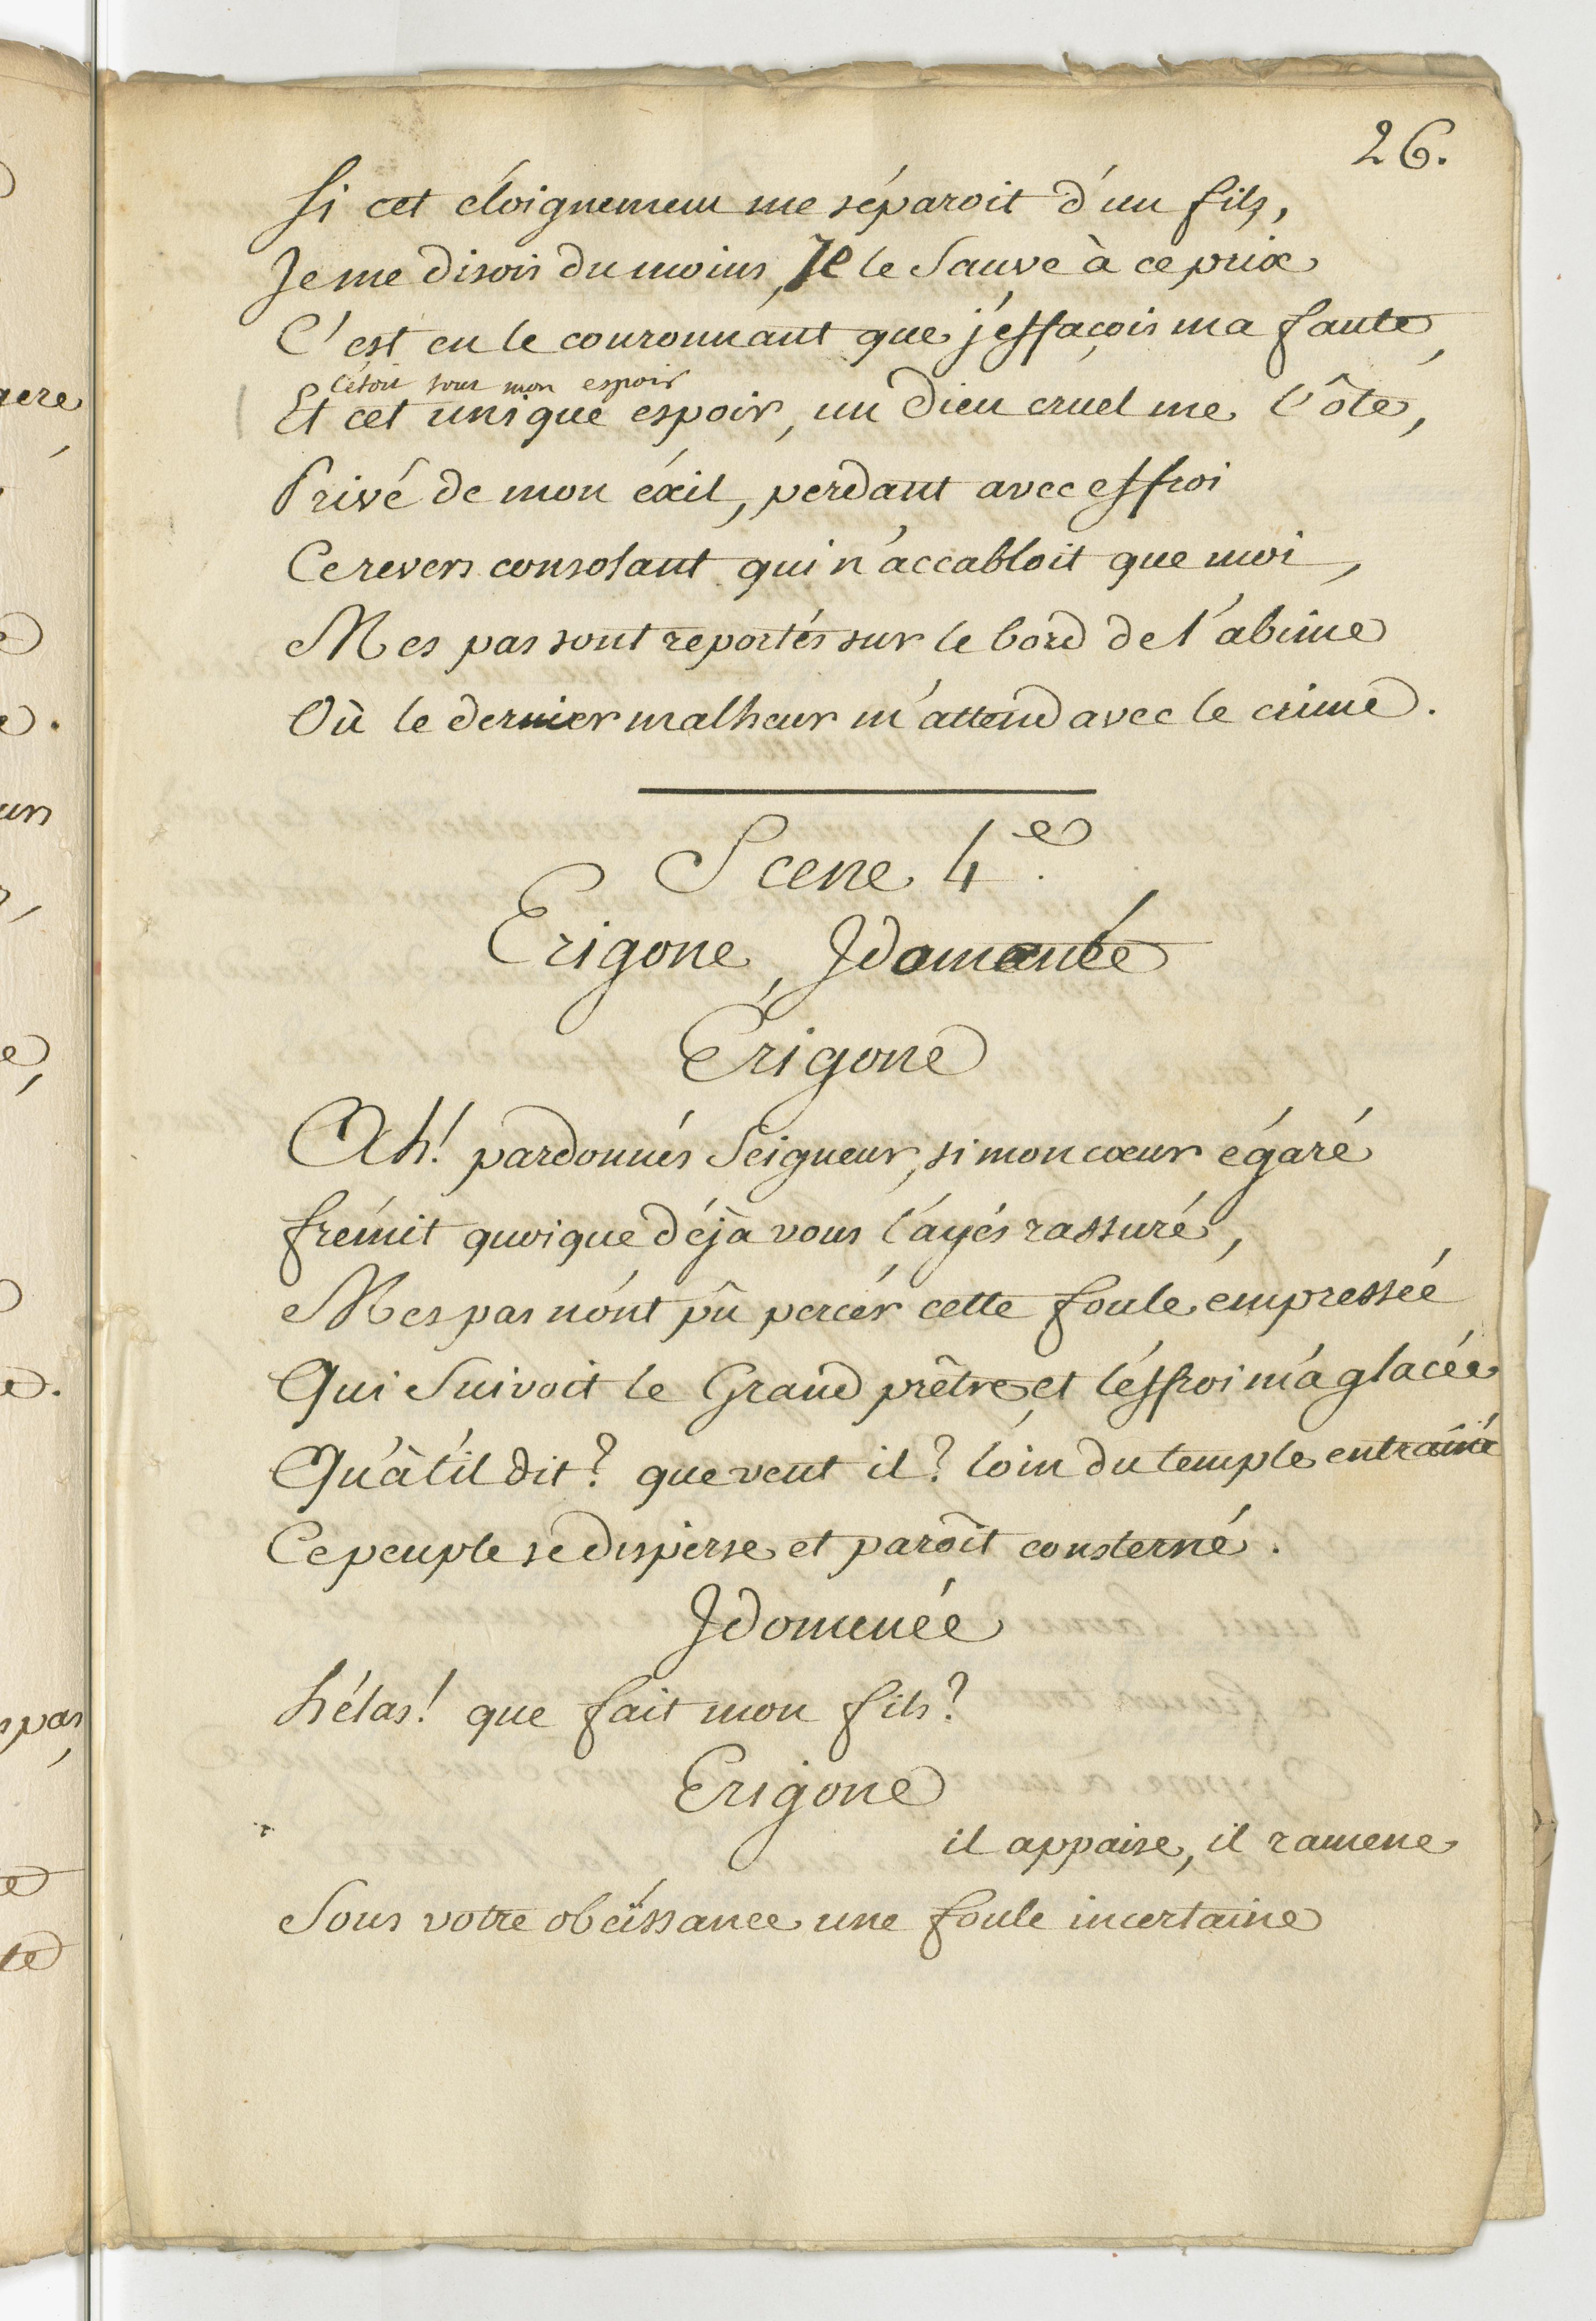 26.
Si cet éloignement me séparoit d'un fils,
Je me disois du moins, Je le Sauve à ce prix
C'est en le couronnant que j'effaçois ma faute,
C'étoit tout mon espoir
Et cet unique espoir, un Dieu cruel me l'ôte,
Privé de mon éxil, perdant avec effroi
Ce revers consolant qui n'accabloit que moi,
Mes pas sont reportés sur le bord de l'abime
Où le dernier malheur m'attend avec le crime.
Scene 4e.
Erigone, Idomenée
Érigone
Ah! pardonnés Seigneur, si mon cœur égaré
frémit quoique déjà vous l'ayés rassuré,
Mes pas n'ont pû percér cette foule empressée
Qui Suivoit le Grand prêtre, et l'effroi m'a glacée
Qu'à t'il dit? que veut il? loin du temple entrainé
Ce peuple se disperse, et paroît consterné.
Idomenée
hélas! que fait mon fils?
Erigone
il appaise, il ramene
Sous votre obéissance une foule incertaine
gere
un
pas
te